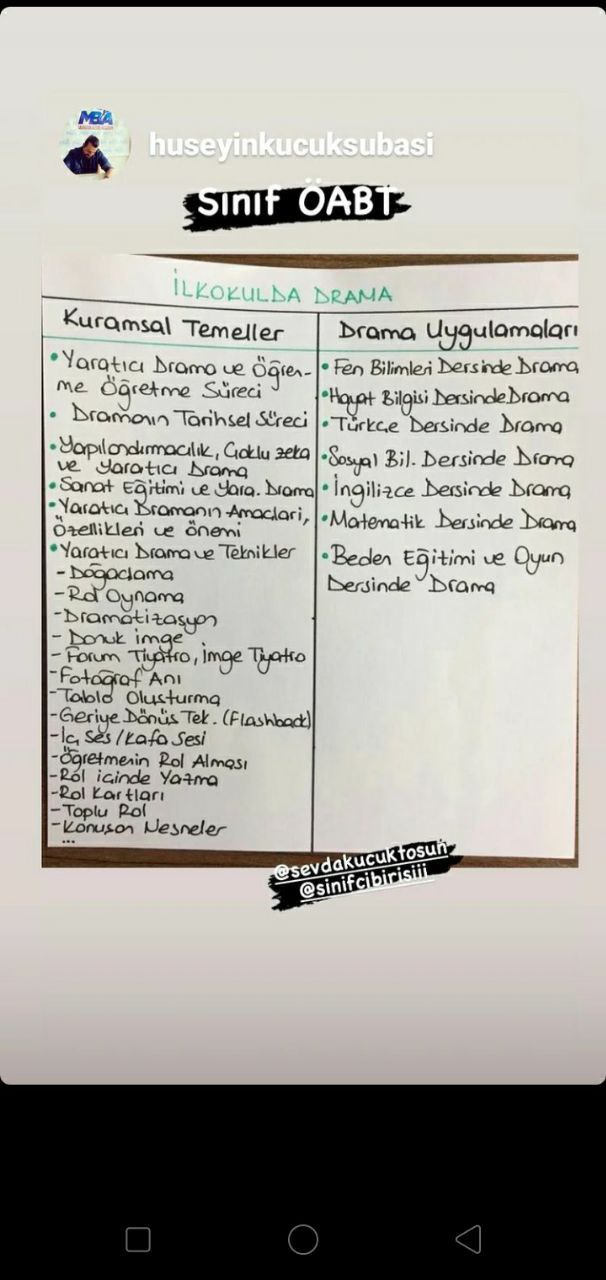 MBA
huseyinkucuksubasi
Sınıf ÖABT
İLKOKULDA DRAMA
Kuramsal Temeller
• Yaratıcı Drama ve Öğren-
me Öğretme Süreci
• Dramanın Tarihsel Süreci
• Yapılandırmacılık, Çoklu zeka
ve Yaratıcı Drama
• Sanat Eğitimi ve Yara. Drama
• Yaratıcı Dramanın Amaçları,
Özellikleri ve önemi
• Yaratıcı Drama ve Teknikler
- Doğaçlama
- Rol Oynama
- Dramatizasyon
- Donuk imge
- Forum Tiyatro, İmge Tiyatro
- Fotoğraf Anı
- Tablo Oluşturma
- Geriye Dönüş Tek. (Flashback)
- İç Ses / Kafa Sesi
- Öğretmenin Rol Alması
- Rol içinde Yazma
- Rol Kartları
- Toplu Rol
- Konuşan Nesneler
...
Drama Uygulamaları
• Fen Bilimleri Dersinde Drama
• Hayat Bilgisi Dersinde Drama
• Türkçe Dersinde Drama
• Sosyal Bil. Dersinde Drama
• İngilizce Dersinde Drama
• Matematik Dersinde Drama
• Beden Eğitimi ve Oyun
Dersinde Drama
@sevdakucuktosun
@sinifcibirisiii